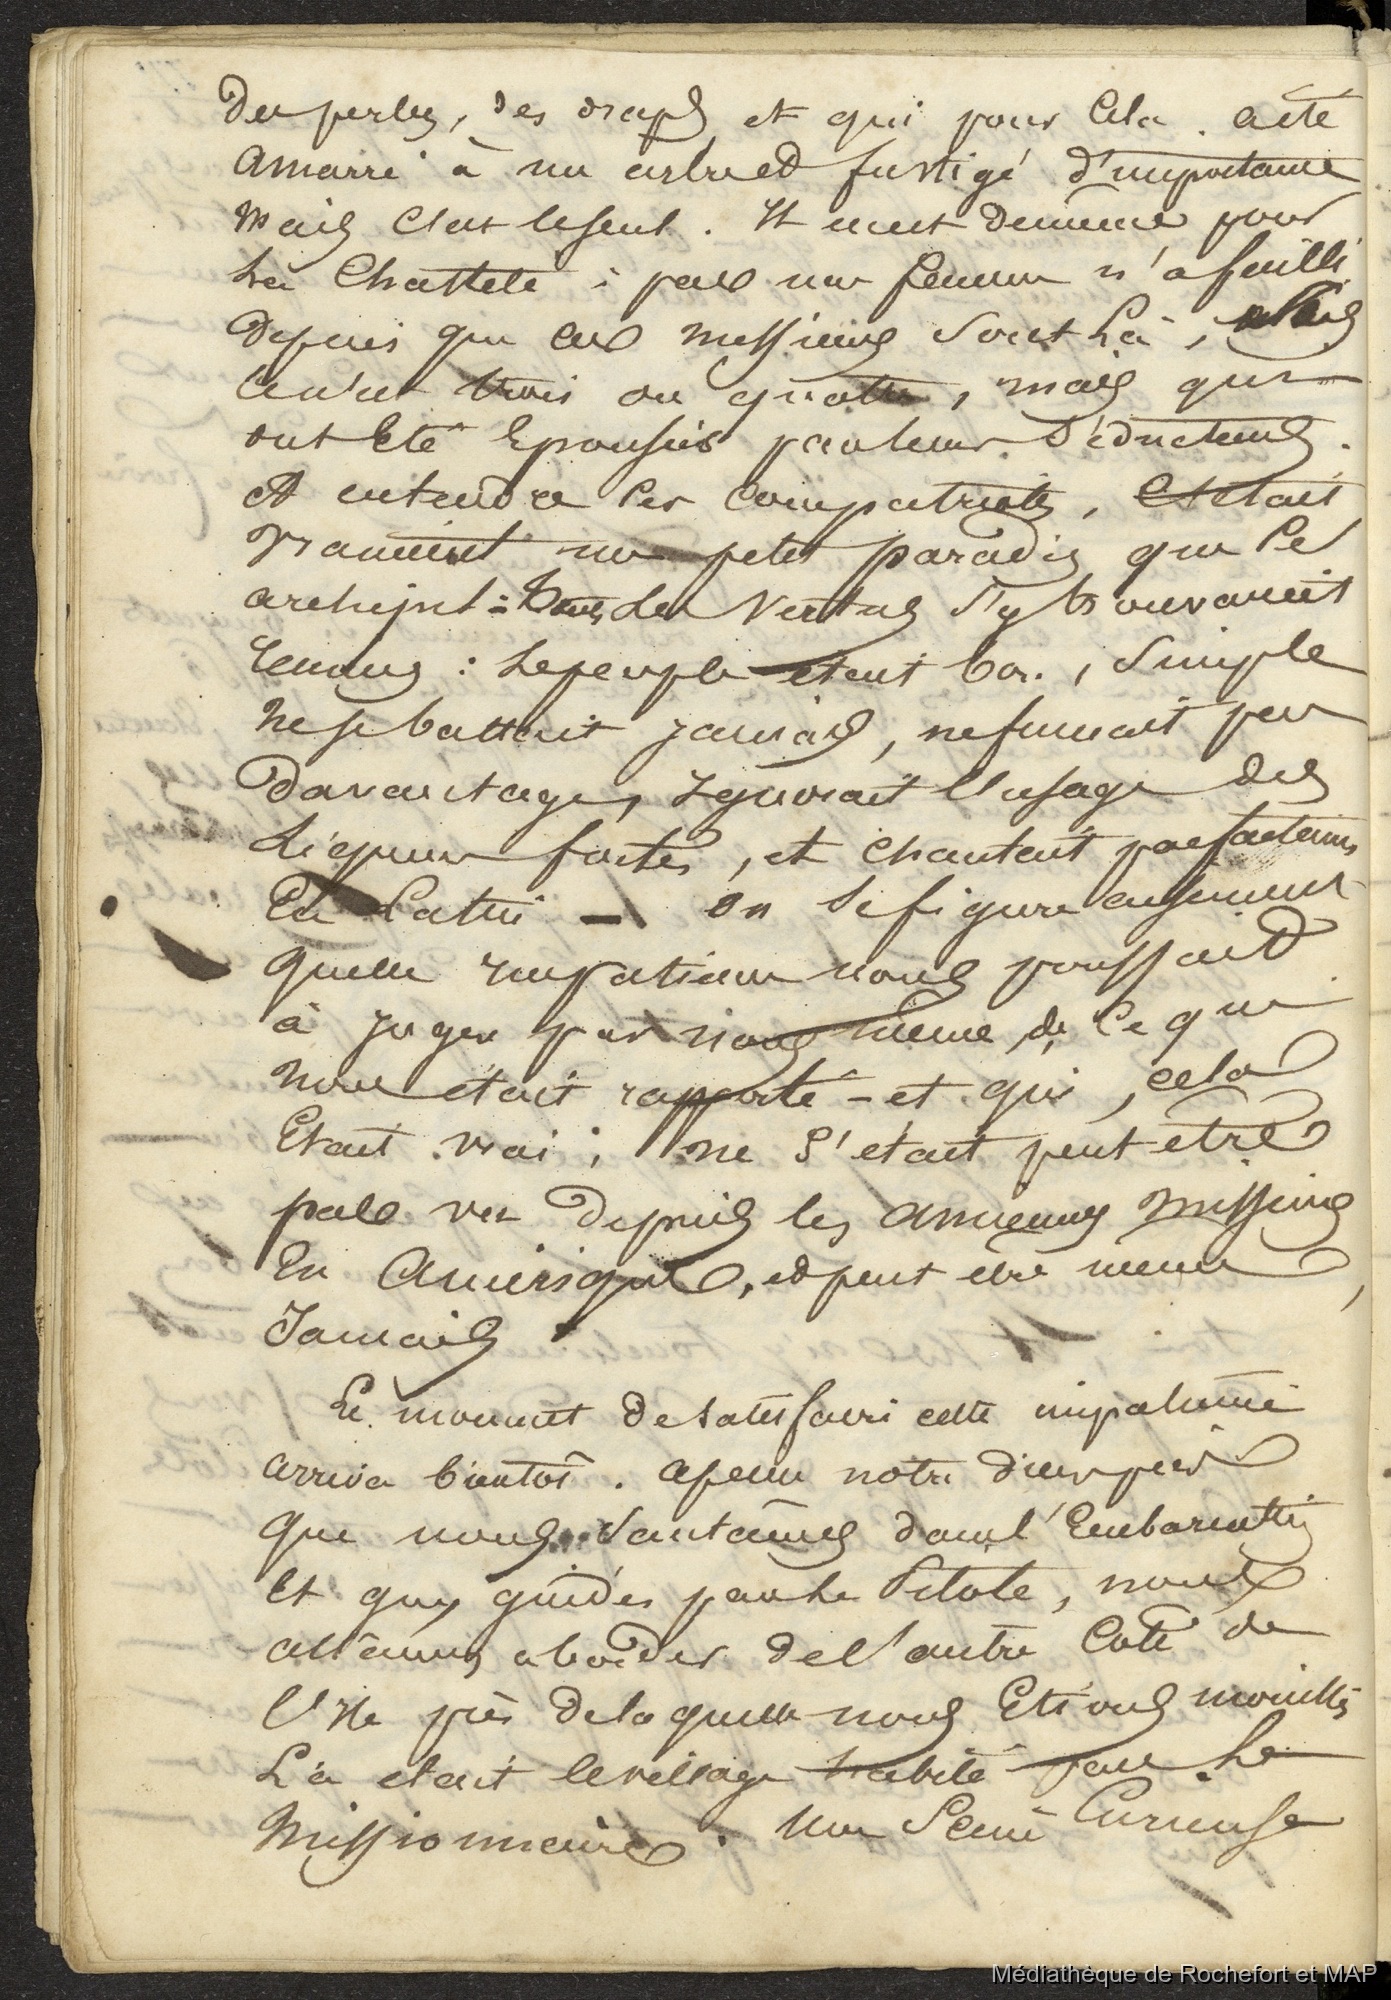 des perles, des draps et qui pour cela a été
amarré à un arbre et fustigé d'importance
mais c'est le seul. Il en est de même pour
la chasteté : pas une femme n'a failli
depuis que ces messieurs sont là,
trois ou quatre, mais qui
ont été épousées par leurs séducteurs.
A entendre les compatriotes, c'était
vraiment un petit paradis que cet
archipel : les vertus s'y trouvaient
: le peuple était bon, simple
ne se battait jamais, ne fumait pas
davantage, ignorait l'usage des
liqueurs fortes, et chantait parfaitement
en latin — on se figure aisément
quelle impatience nous poussait
à juger par nous même de ce qui
nous était rapporté - et qui, cela
était vrai, ne s'était peut être
pas vu depuis les anciennes missions
en Amérique, et peut être même
Jamais
Le moment de satisfaire cette impatience
arriva bientôt. a peine notre dîner
que nous sautâmes dans l'embarcation
et guidés par le Pilote, nous
allâmes aborder de l'autre coté de
l'Ile près de laquelle nous étions mouillés
Là était le village habité par le
Missionnaire. Une Scène curieuse
Médiathèque de Rochefort et MAP